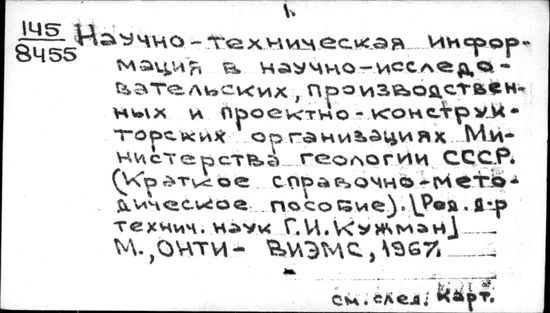 1.
145
8455
Научно-техническая инфор-
мация в научно-исследо-
вательских, производствен-
ных и проектно-конструк-
торских организациях Ми-
нистерства геологии СССР.
(Краткое справочно-мето-
дическое пособие). [Ред. д-р
технич. наук Г.И. Кужман]
М., ОНТИ- ВИЭМС, 1967.
см. след. карт.